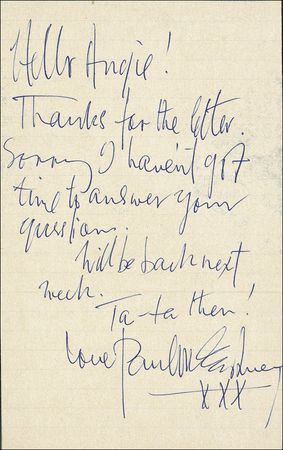 Hello Angie!
Thanks for the letter.
Sorry I haven't got
time to answer your
questions.
Will be back next
week.
Ta-ta then!
love Paul McCartney
XXX